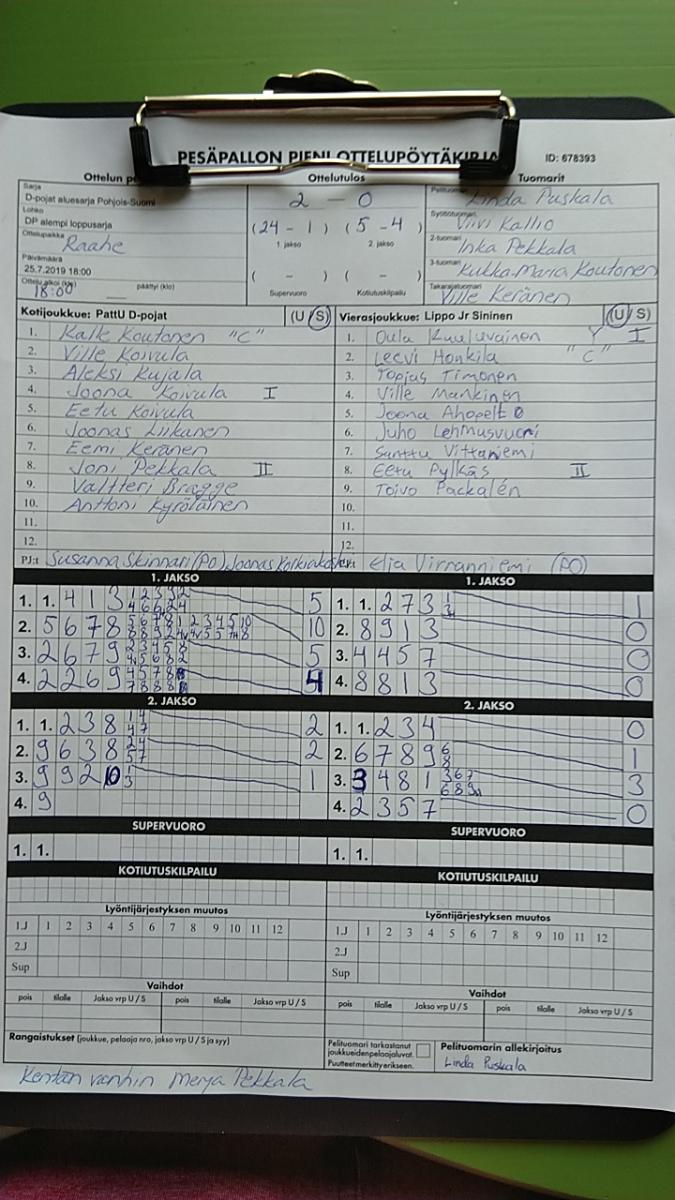 PESÄPALLON PIENI OTTELUPÖYTÄKIRJA
ID: 678393
Ottelun
Ottelutulos
Tuomarit
Sarja
D-pojat aluesarja Pohjois-Suomi
Lohko
DP alempi loppusarja
Ottelupaikka
Raahe
Päivämäärä
25.7.2019 18:00
Ottelu alkoi (klo) päättyi (klo)
18:00
2 - 0
(24 - 1) (5 - 4)
1. jakso 2. jakso
( - ) ( - )
Supervuoro Kotiutuskilpailu
Pelituomari
Linda Puskala
Syöttötuomari
Viivi Kallio
2-tuomari
Inka Pekkala
3-tuomari
Kukka-Maria Koutonen
Takarajatuomari
Ville Keränen
Kotijoukkue: PattU D-pojat (U/S)
1. Kalle Koutonen "C"
2. Ville Koivula
3. Aleksi Kujala
4. Joona Koivula I
5. Eetu Koivula
6. Joonas Liikanen
7. Eemi Keränen
8. Joni Pekkala II
9. Valtteri Bragge
10. Anttoni Kyröläinen
11.
12.
PJ:t Susanna Skinnari (PO) Joonas
Vierasjoukkue: Lippo Jr Sininen (U/S)
1. Oula Y I
2. Leevi Honkila "C"
3. Topias Timonen
4. Ville Mankinen
5. Joona Ahopelto
6. Juho Lehmusvuori
7. Santtu Vittaniemi
8. Eetu Pylkäs II
9. Toivo Packalén
10.
11.
12.
Elja Virranniemi (PO)
1. JAKSO
1. 1. 4 1 3 5
2. 5 6 7 8 10
3. 2 6 7 9 5
4. 2 2 6 9 4
1. JAKSO
1. 1. 2 7 3 1
2. 8 9 1 3 0
3. 4 4 5 7 0
4. 8 8 1 3 0
2. JAKSO
1. 1. 2 3 8 2
2. 9 6 3 8 2
3. 9 9 2 10 1
4. 9
2. JAKSO
1. 1. 2 3 4 0
2. 6 7 8 9 1
3. 3 4 8 1 3
4. 2 3 5 7 0
SUPERVUORO
1. 1.
SUPERVUORO
1. 1.
KOTIUTUSKILPAILU
KOTIUTUSKILPAILU
Lyöntijärjestyksen muutos
1.J 1 2 3 4 5 6 7 8 9 10 11 12
2.J
Sup
Lyöntijärjestyksen muutos
1.J 1 2 3 4 5 6 7 8 9 10 11 12
2.J
Sup
Vaihdot
pois tilalle Jakso vrp U / S pois tilalle Jakso vrp U / S
Vaihdot
pois tilalle Jakso vrp U / S pois tilalle Jakso vrp U / S
Rangaistukset (joukkue, pelaaja nro, jakso vrp U / S ja syy)
Pelituomari tarkastanut
joukkueiden pelaajaluvat.
Puutteet merkitty erikseen.
Pelituomarin allekirjoitus
Linda Puskala
Kentän vanhin Merja Pekkala